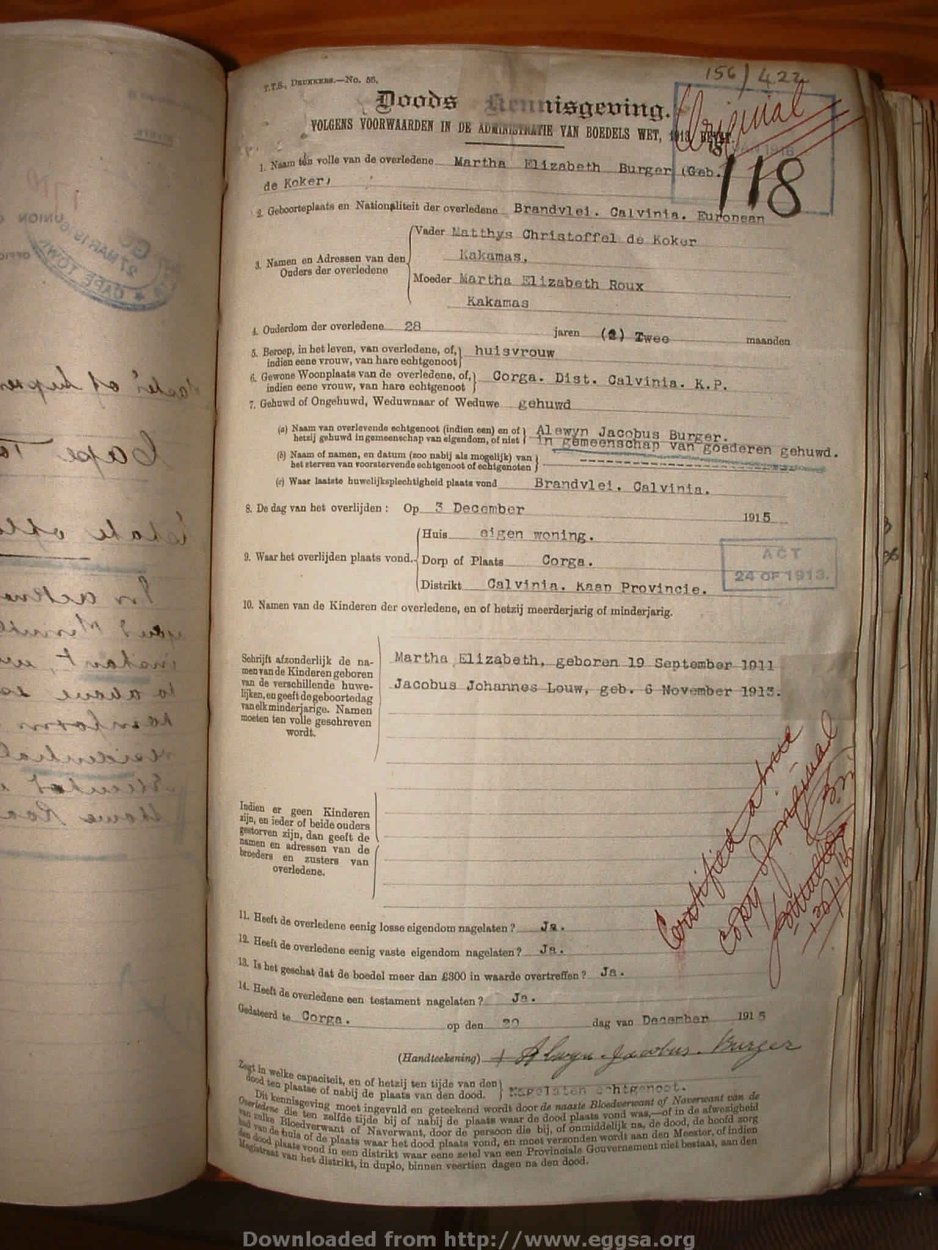 T.T.S., DRUKKERS.—No. 56.
156/422
Doods Kennisgeving.
Original
VOLGENS VOORWAARDEN IN DE ADMINISTRATIE VAN BOEDELS WET, 1913,
118
1. Naam ten volle van de overledene Martha Elizabeth Burger (Geb.
de Koker)
2. Geboorteplaats en Nationaliteit der overledene Brandvlei. Calvinia. European
3. Namen en Adressen van den Ouders der overledene
Vader Matthys Christoffel de Koker
Kakamas.
Moeder Martha Elizabeth Roux
Kakamas
4. Ouderdom der overledene 28 jaren (2) Twee maanden
5. Beroep, in het leven, van overledene, of, indien eene vrouw, van hare echtgenoot huisvrouw
6. Gewone Woonplaats van de overledene, of, indien eene vrouw, van hare echtgenoot Corga. Dist. Calvinia. K.P.
7. Gehuwd of Ongehuwd, Weduwnaar of Weduwe gehuwd
(a) Naam van overlevende echtgenoot (indien een) en of hetzij gehuwd in gemeenschap van eigendom, of niet Alewyn Jacobus Burger.
in gemeenschap van goederen gehuwd.
(b) Naam of namen, en datum (zoo nabij als mogelijk) van het sterven van voorstervende echtgenoot of echtgenoten
(c) Waar laatste huwelijksplechtigheid plaats vond Brandvlei. Calvinia.
8. De dag van het overlijden : Op 3 December 1915
9. Waar het overlijden plaats vond.
Huis eigen woning.
Dorp of Plaats Corga.
Distrikt Calvinia. Kaap Provincie.
ACT
24 OF 1913.
10. Namen van de Kinderen der overledene, en of hetzij meerderjarig of minderjarig.
Schrijft afzonderlijk de na-
men van de Kinderen geboren
van de verschillende huwe-
lijken, en geeft de geboortedag
van elk minderjarige. Namen
moeten ten volle geschreven
wordt.
Martha Elizabeth, geboren 19 September 1911
Jacobus Johannes Louw, geb. 6 November 1913.
Indien er geen Kinderen
zijn, en ieder of beide ouders
gestorven zijn, dan geeft de
namen en adressen van de
broeders en zusters van
overledene.
Certified a true
copy of original
11. Heeft de overledene eenig losse eigendom nagelaten ? Ja.
12. Heeft de overledene eenig vaste eigendom nagelaten ? Ja.
13. Is het geschat dat de boedel meer dan £300 in waarde overtreffen ? Ja.
14. Heeft de overledene een testament nagelaten ? Ja.
Gedateerd te Corga. op den 20 dag van December 1915
(Handteekening) Alwyn Jacobus Burger
Zegt in welke capaciteit, en of hetzij ten tijde van den dood ten plaatse of nabij de plaats van den dood. Nagelaten echtgenoot.
Dit kennisgeving moet ingevuld en geteekend wordt door de naaste Bloedverwant of Naverwant van de
Overledene die ten zelfde tijde bij of nabij de plaats waar de dood plaats vond was,—of in de afwezigheid
van zulke Bloedverwant of Naverwant, door de persoon die bij, of onmiddelijk na, de dood, de hoofd zorg
had van de huis of de plaats waar het dood plaats vond, en moet verzonden wordt aan den Meester, of indien
den dood plaats vond in een distrikt waar eene zetel van een Provinciale Gouvernement niet bestaat, aan den
Magistraat van het distrikt, in duplo, binnen veertien dagen na den dood.
Downloaded from http://www.eggsa.org